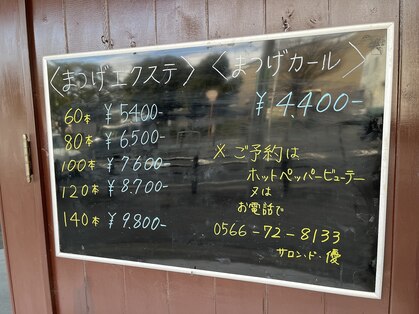 〈まつげエクステ〉
60本 ¥5400-
80本 ¥6500-
100本 ¥7600-
120本 ¥8.700-
140本 ¥9.800-
〈まつげカール〉
¥4.400-
※ご予約は
ホットペッパービューテー
又は
お電話で
0566-72-8133
サロン・ド・優